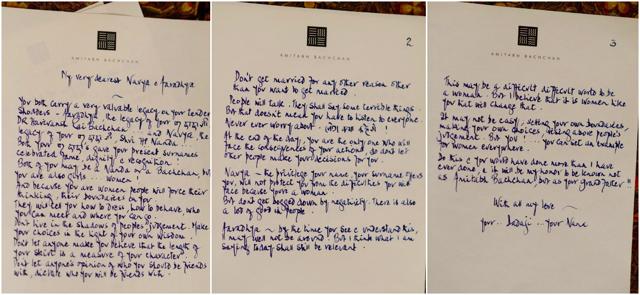 AMITABH BACHCHAN
My very dearest Navya & Aaradhya
You both carry a very valuable legacy on your tender
shoulders - Aaradhya, the legacy of your
DR Harivansh Rai Bachchan ... and Navya, the
legacy of your Shri HP Nanda ..
Both your gave your present surnames
celebrated fame, dignity & recognition.
Both of you may be a Nanda or a Bachchan, but
you are also girls .. women !
And because you are women people will force their
thinking, their boundaries on you
They will tell you how to dress, how to behave, who
you can meet and where you can go.
Don't live in the shadows of people's judgement. Make
your choices in the light of your own wisdom.
Don't let anyone make you believe that the length of
your skirt is a measure of your character.
Don't let anyone's opinion of who you should be friends
with, dictate who you will be friends with.
2
AMITABH BACHCHAN
Don't get married for any other reason other
than you want to get married.
People will talk. They shall say some terrible things.
But that doesn't mean you have to listen to everyone.
Never ever worry about
At the end of the day, you are the only one who will
face the consequences of your actions, so dont let
other people make your decisions for you.
Navya - the privilege your name, your surname offers
you, will not protect you from the difficulties you will
face because you're a woman.
But dont get bogged down by negativity. There is also
a lot of good in people.
Aaradhya - by the time you see & understand this,
I may well not be around. But I think what I am
saying today shall still be relevant.
3
AMITABH BACHCHAN
This may be a difficult difficult world to be
a woman. But I believe that it is women like
you that will change that.
It may not be easy, setting your own boundaries,
making your own choices, rising above people's
judgement. But YOU ! .... you can set an example
for women everywhere.
Do this & you would have done more than I have
ever done, & it will be my honor to be known not
as Amitabh Bachchan but as your grandfather !!
With all my love ~
Your .. Dadaji ... Your Nana